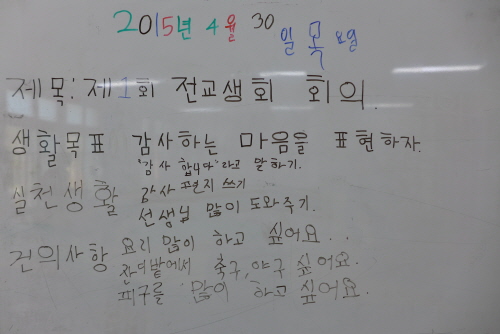 2015년 4월 30일 목요일
제목: 제1회 전교생회 회의.
생활목표 감사하는 마음을 표현하자.
"감사 합니다"라고 말하기.
실천생활 감사 편지 쓰기
선생님 많이 도와주기.
건의사항 요리 많이 하고 싶어요..
잔디밭에서 축구, 야구 싶어요.
피구를 많이 하고 싶어요.